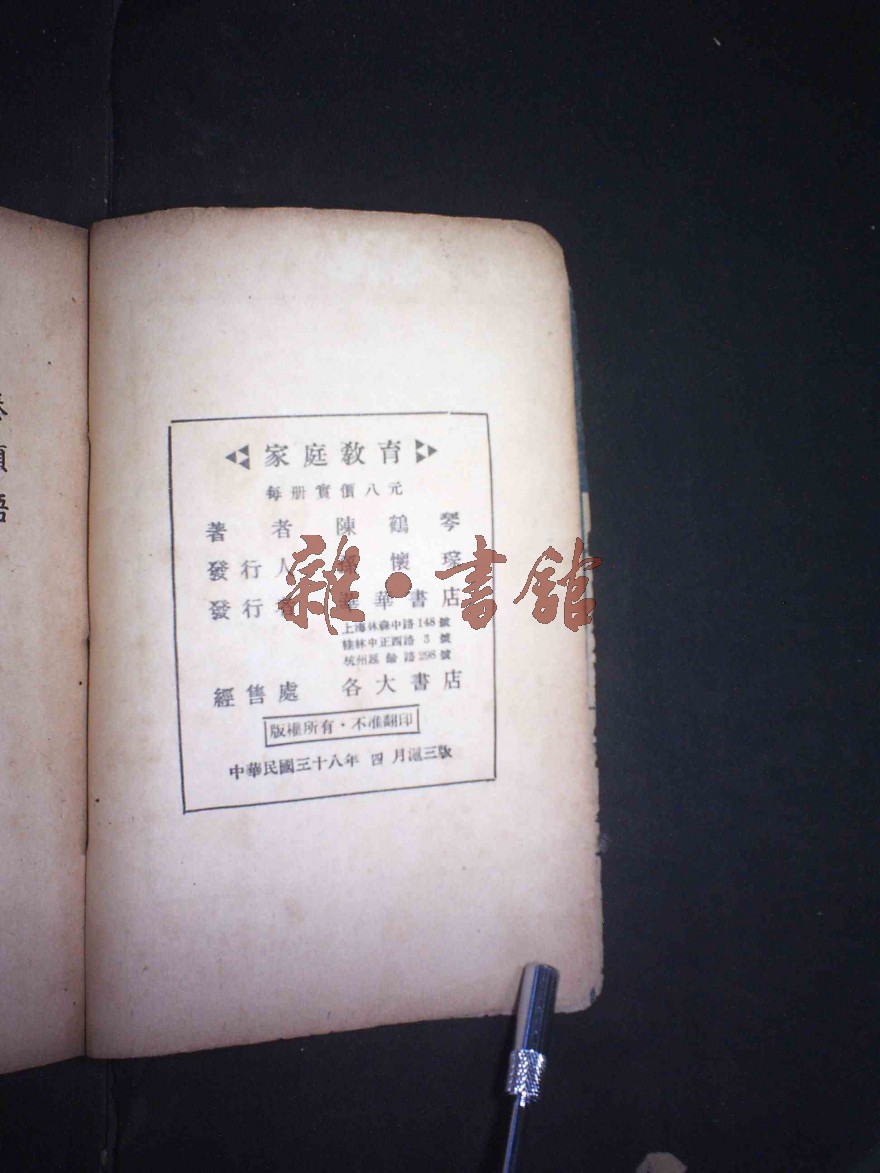 家庭教育
每册實價八元
著者 陳鶴琴
發行人 孫懷琮
發行者 華華書店
上海林森中路148號
桂林中正西路3號
杭州延齡路298號
經售處 各大書店
版權所有·不准翻印
中華民國三十八年四月滬三版
雜·書館
卷頭語